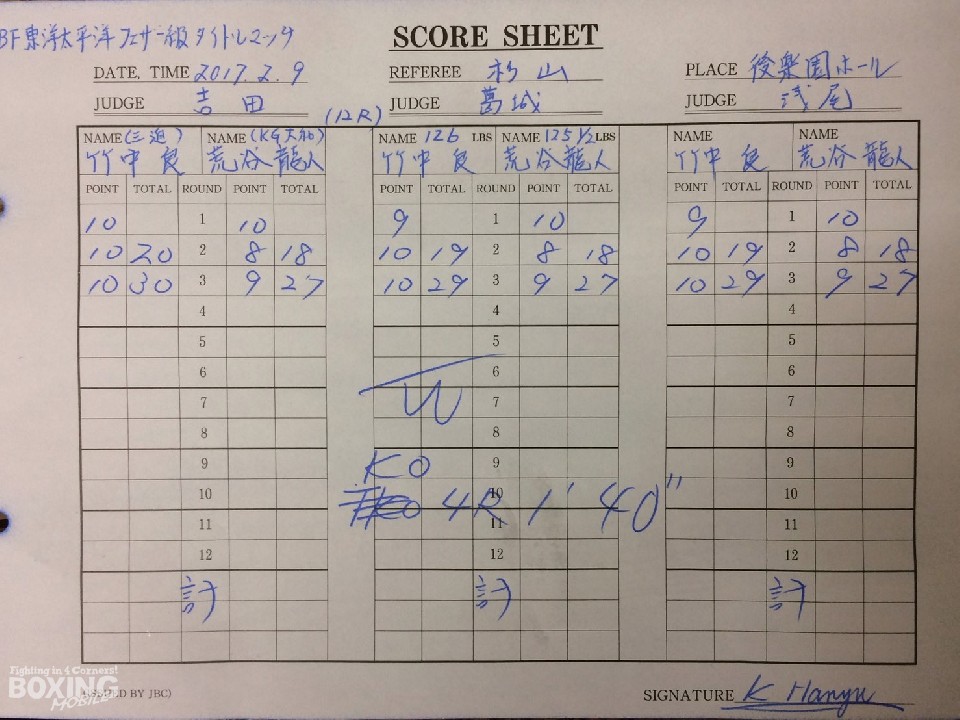 BF東洋太平洋フェザー級タイトルマッチ
SCORE SHEET
DATE, TIME 2017.2.9 REFEREE 杉山 PLACE 後楽園ホール
JUDGE 吉田 (12R) JUDGE 葛城 JUDGE 浅尾
NAME (三迫) NAME (KG大和) NAME 126 LBS NAME 125 1/2 LBS NAME NAME
竹中 良 荒谷龍人 竹中 良 荒谷龍人 竹中 良 荒谷龍人
POINT TOTAL ROUND POINT TOTAL POINT TOTAL ROUND POINT TOTAL POINT TOTAL ROUND POINT TOTAL
10 1 10 9 1 10 9 1 10
10 20 2 8 18 10 19 2 8 18 10 19 2 8 18
10 30 3 9 27 10 29 3 9 27 10 29 3 9 27
4 4 4
5 5 5
6 6 6
7 W 7 7
8 8 8
9 KO 9 9
10 4R 10 1' 40" 10
11 11 11
12 12 12
計 計 計
Fighting in 4 Corners!
BOXING MOBILE
ISSUED BY JBC) SIGNATURE K Hanyu